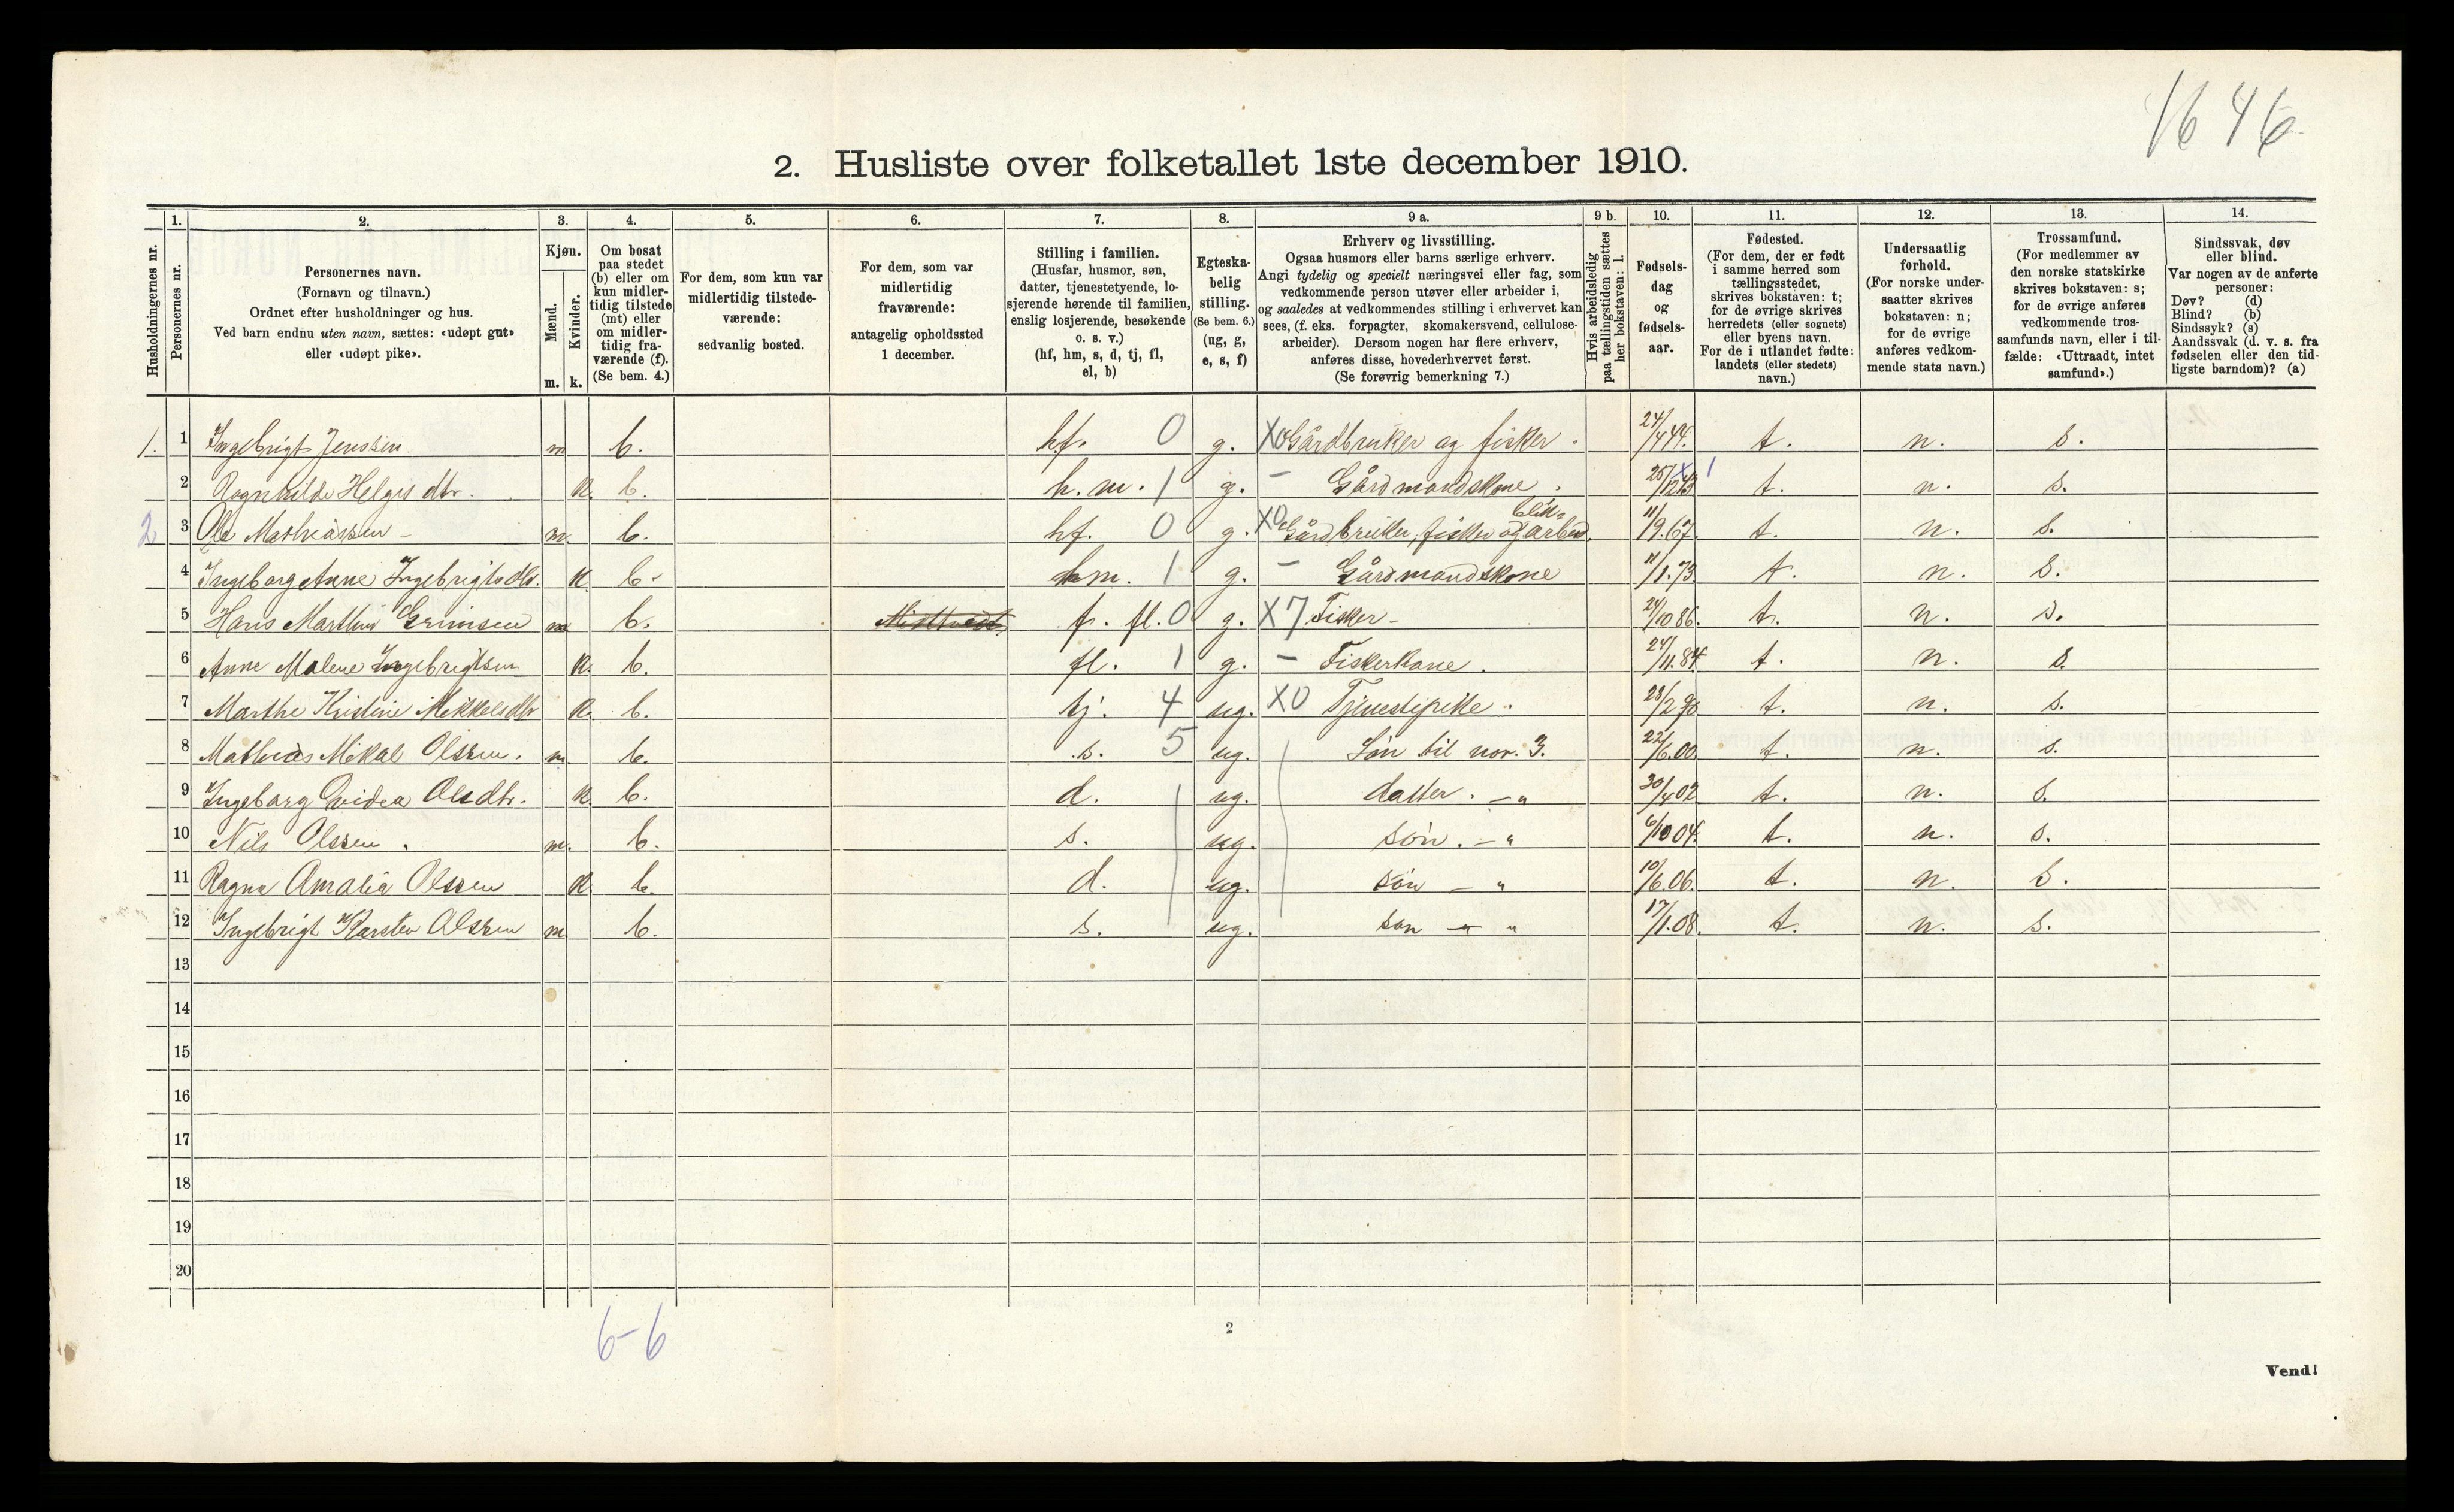 1646
2. Husliste over folketallet 1ste december 1910.
Husholdningernes nr.
1. Personernes nr.
2. Personernes navn.
(Fornavn og tilnavn.)
Ordnet efter husholdninger og hus.
Ved barn endnu uten navn, sættes: «udøpt gut»
eller «udøpt pike».
3. Kjøn.
Mænd. Kvinder.
m. k.
4. Om bosat
paa stedet
(b) eller om
kun midler-
tidig tilstede
(mt) eller
om midler-
tidig fra-
værende (f).
(Se bem. 4.)
5. For dem, som kun var
midlertidig tilstede-
værende:
sedvanlig bosted.
6. For dem, som var
midlertidig
fraværende:
antagelig opholdssted
1 december.
7. Stilling i familien.
(Husfar, husmor, søn,
datter, tjenestetyende, lo-
sjerende hørende til familien,
enslig losjerende, besøkende
o. s. v.)
(hf, hm, s, d, tj, fl,
el, b)
8. Egteska-
belig
stilling.
(Se bem. 6.)
(ug, g,
e, s, f)
9 a. Erhverv og livsstilling.
Ogsaa husmors eller barns særlige erhverv.
Angi tydelig og specielt næringsvei eller fag, som
vedkommende person utøver eller arbeider i,
og saaledes at vedkommendes stilling i erhvervet kan
sees, (f. eks. forpagter, skomakersvend, cellulose-
arbeider). Dersom nogen har flere erhverv,
anføres disse, hovederhvervet først.
(Se forøvrig bemerkning 7.)
9 b. Hvis arbeidsledig
paa tællingstiden sættes
her bokstaven: l.
10. Fødsels-
dag
og
fødsels-
aar.
11. Fødested.
(For dem, der er født
i samme herred som
tællingsstedet,
skrives bokstaven: t;
for de øvrige skrives
herredets (eller sognets)
eller byens navn.
For de i utlandet fødte:
landets (eller stedets)
navn.)
12. Undersaatlig
forhold.
(For norske under-
saatter skrives
bokstaven: n;
for de øvrige
anføres vedkom-
mende stats navn.)
13. Trossamfund.
(For medlemmer av
den norske statskirke
skrives bokstaven: s;
for de øvrige anføres
vedkommende tros-
samfunds navn, eller i til-
fælde: «Uttraadt, intet
samfund».)
14. Sindssvak, døv
eller blind.
Var nogen av de anførte
personer:
Døv? (d)
Blind? (b)
Sindssyk? (s)
Aandssvak (d. v. s. fra
fødselen eller den tid-
ligste barndom)? (a)
1. 1 Ingebrigt Jenssen m b. hf. 0 g. X0 Gårdbruker og fisker. 24/4 44. t. n. s.
2 Ragnhilde Helges dtr. k. b. h. m. 1 g. - Gårdmandskone. 25/12 43 1 t. n. s.
2 3 Ole Mathiassen m. b. hf. 0 g. X0 Gårdbruker, fisker og arbeid. 11/9.67. t. n. s.
4 Ingeborg Anne Ingebrigtsdtr. k b. hm. 1 g. - Gårdmandskone 11/1.73 t. n. s.
5 Hans Martin Grimsen m b. fl. 0 g. X7 Fisker 24/10 86. t. n. s.
6 Anne Malene Ingebrigtsen k. b. fl. 1 g. - Fiskerkone. 24/11.84 t. n. s.
7 Marthe Kristine Mikkelsdtr k. b. tj. 4 ug. X0 Tjenestepike. 28/2 90 t. n. s.
8 Mathias Mikal Olssen. m b. s. 5 ug. Søn til nor. 3. 22/6.00. t. n. s.
9 Ingeborg Olsdtr. k. b. d. ug. datter. - " 30/4 02 t. n. s.
10 Nils Olssen. m. b. s. ug. søn. - " 6/10 04. t. n. s.
11 Ragna Amalia Olssen k. b. d. ug. søn - " 10/6.06. t. n. s.
12 Ingebrigt Karsten Olssen m b. s. ug. søn - " 17/1.08. t. n. s.
13
14
15
16
17
18
19
20
6-6
2
Vend!